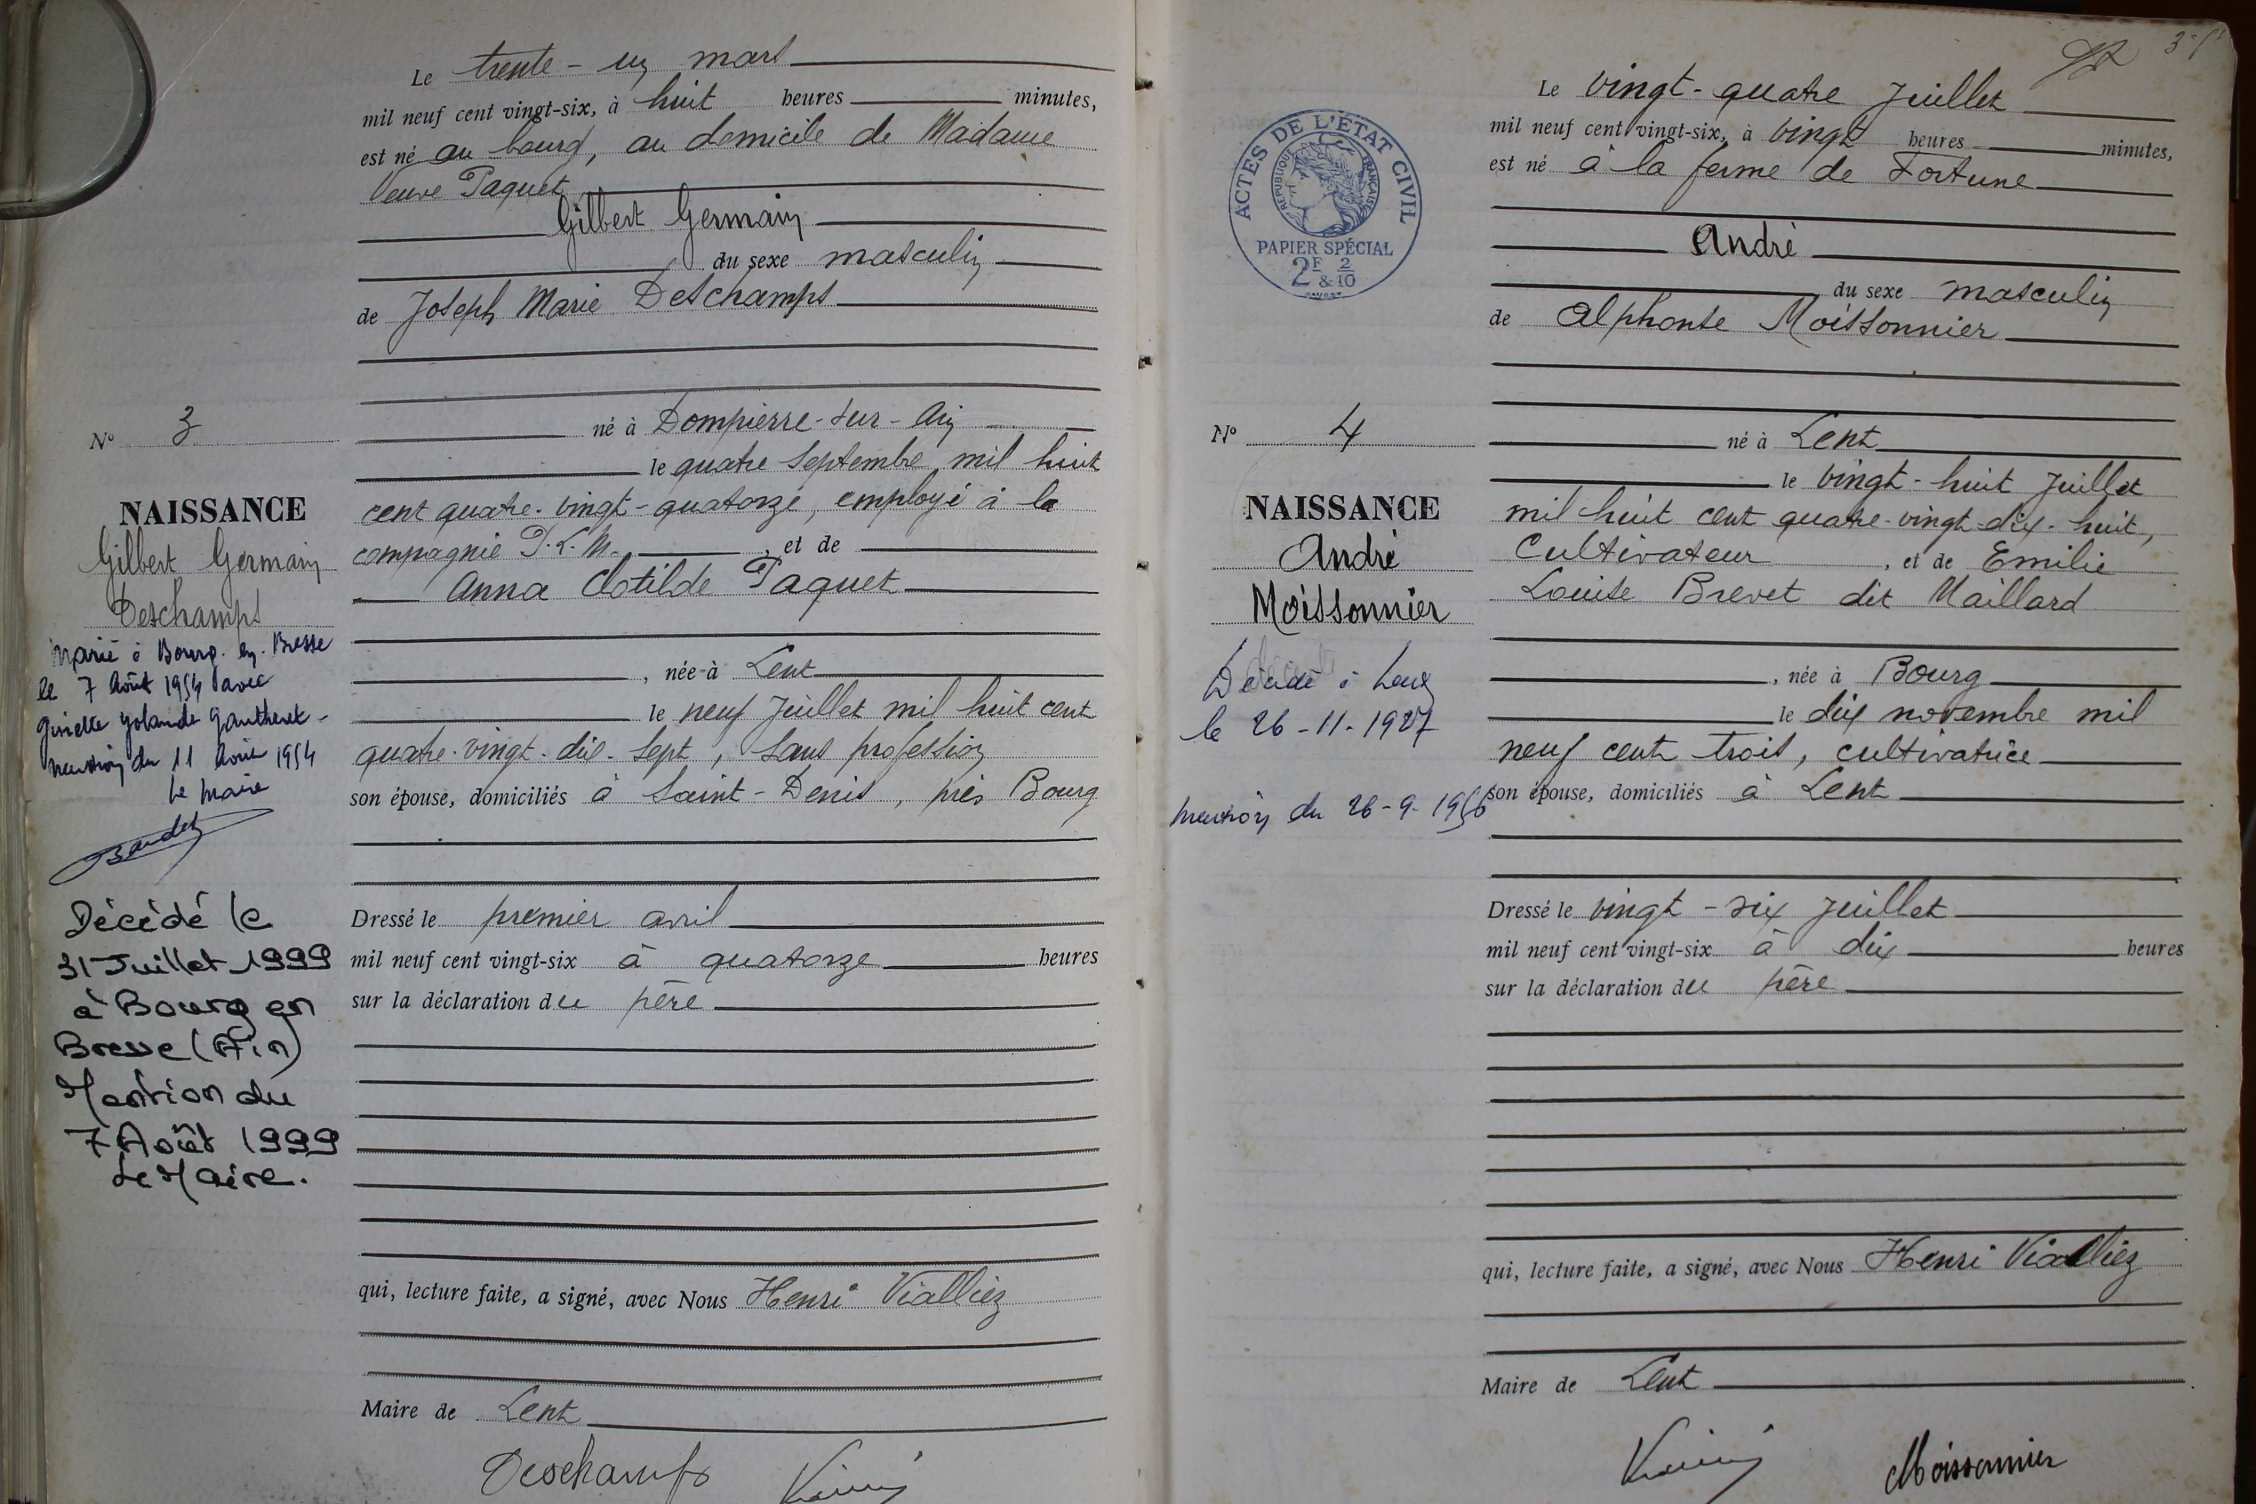 Le trente-un mars
mil neuf cent vingt-six, à huit heures minutes,
est né au bourg, au domicile de Madame
Veuve Paquet
Gilbert Germain
du sexe masculin
de Joseph Marie Deschamps
né à Dompierre-sur-Ain
le quatre Septembre mil huit
cent quatre-vingt-quatorze, employé à la
compagnie P.L.M. , et de
Anna Clotilde Paquet
, née à Lent
le neuf Juillet mil huit cent
quatre-vingt-dix-sept, sans profession
son épouse, domiciliés à Saint-Denis, près Bourg
Dressé le premier avril
mil neuf cent vingt-six à quatorze heures
sur la déclaration du père
qui, lecture faite, a signé, avec Nous Henri Vialliez
Maire de Lent
Deschamps
No 3
NAISSANCE
Gilbert Germain
Deschamps
Marié à Bourg-en-Bresse
le 7 Août 1954 avec
Ginette Yolande Gautheret-
mention du 11 Août 1954
Le Maire
Décédé le
31 Juillet 1999
à Bourg en
Bresse (Ain)
Mention du
7 Août 1999
Le Maire.
Le vingt-quatre Juillet
mil neuf cent vingt-six, à vingt heures minutes,
est né à la ferme de Fortune
André
du sexe masculin
de Alphonse Moissonnier
né à Lent
le vingt-huit Juillet
mil huit cent quatre-vingt-dix-huit,
Cultivateur , et de Emilie
Louise Brevet dit Maillard
, née à Bourg
le dix novembre mil
neuf cent trois, cultivatrice
son épouse, domiciliés à Lent
Dressé le vingt-six Juillet
mil neuf cent vingt-six à dix heures
sur la déclaration du père
qui, lecture faite, a signé, avec Nous Henri Vialliez
Maire de Lent
Moissonnier
ACTES DE L'ÉTAT CIVIL
RÉPUBLIQUE FRANÇAISE
PAPIER SPÉCIAL
2F & 2/10
No 4
NAISSANCE
André
Moissonnier
Décédé à Lent
le 26-11-1927
mention du 26-9-1956